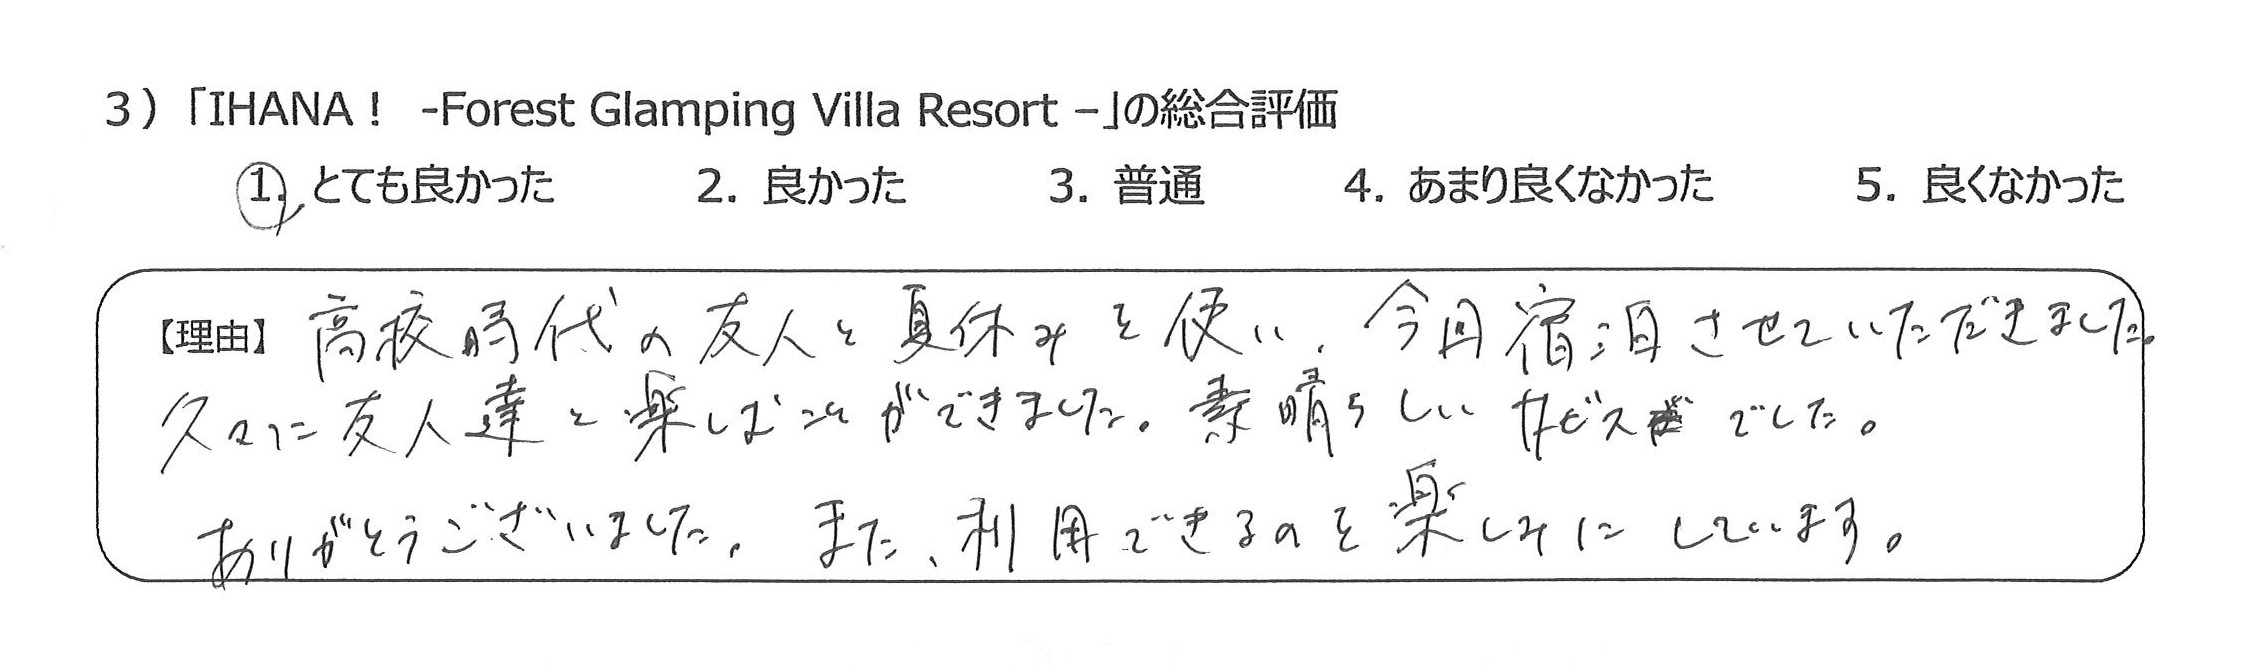 3）「IHANA！ -Forest Glamping Villa Resort –」の総合評価
1. とても良かった 2. 良かった 3. 普通 4. あまり良くなかった 5. 良くなかった
【理由】高校時代の友人と夏休みを使い、今回宿泊させていただきました。
久々に友人達と楽しむことができました。素晴らしい サービス でした。
ありがとうございました。また、利用できるのを楽しみにしています。